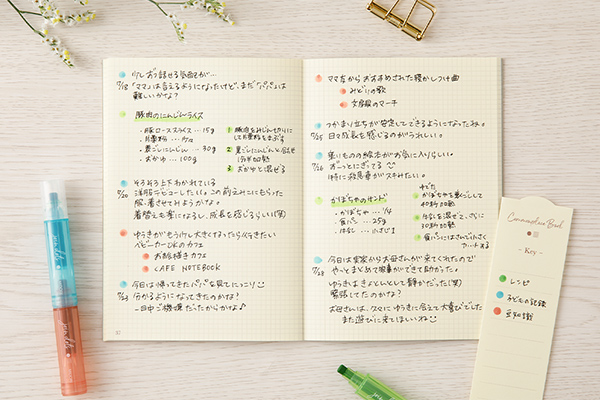 少しずつ話せる気配が…
7/18 「ママ」は言えるようになったけど、まだ「パパ」は
難しいかな?
豚肉のにんじんライス
・豚ローススライス … 15g
・片栗粉 … 少々
・裏ごしにんじん … 30g
・おかゆ … 100g
1 豚肉をみじん切りにし
片栗粉をまぶす
2 裏ごしにんじんと合せ
1分半加熱
3 おかゆと混ぜる
そろそろ上下わかれている
7/20 洋服デビューしたい。この前えみにもらった
服、着させてみようかな。
着替えも楽になるし、成長を感じるらしい(笑)
ゆうきがもう少し大きくなったら行きたい
ベビーカーOKのカフェ
お絵描きカフェ
CAFE NOTEBOOK
今日は帰ってきたパパを見てにっこり
7/24 分かるようになってきたのかな?
一日中ご機嫌だったからかな♪
ママ友からおすすめされた寝かしつけ曲
みどりの歌
文房具のマーチ
つかまり立ちが安定してできるようになったね。
7/25 日々成長を感じるのがうれしい。
乗りものの絵本がお気に入りらしい。
7/26 ずーっとにぎってる
特に救急車がスキみたい。
かぼちゃのサンド
・かぼちゃ … 1/4
・食パン … 25g
・牛乳 … 小さじ1
ゆでた
かぼちゃを裏ごしして
40秒加熱
牛乳を混ぜて、さらに
30秒加熱
食パンにはさんで小さく
カットする
今日は実家からお母さんが来てくれたので
7/28 やーっとまとめて家事ができて助かった。
ゆうきはきょとんとして静かだった(笑)
緊張してたのかな?
お母さんは、久々にゆうきに会えて大喜びでした
また遊びに来てほしいね
Commonplace Book
- Key -
レシピ
子どもの記録
豆知識